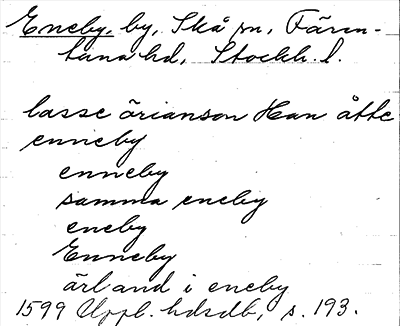 Eneby, by, Skå sn, Fären-
tuna hd, Stockh. l.
lasse örianson Han åtte
enneby
enneby
samma eneby
eneby
Enneby
ärland i eneby
1599 Uppl. hdrdb, s. 193.